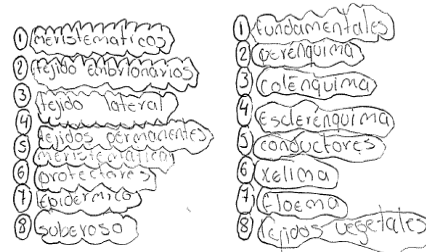 1 meristematicos
2 tejido embrionarios
3 tejido lateral
4 tejidos permanentes
5 meristematica
6 protectores
7 Epidermico
8 suberoso
1 fundamentales
2 perénquima
3 colénquima
4 Esclerénquima
5 conductores
6 xelima
7 floema
8 tejidos vegetales